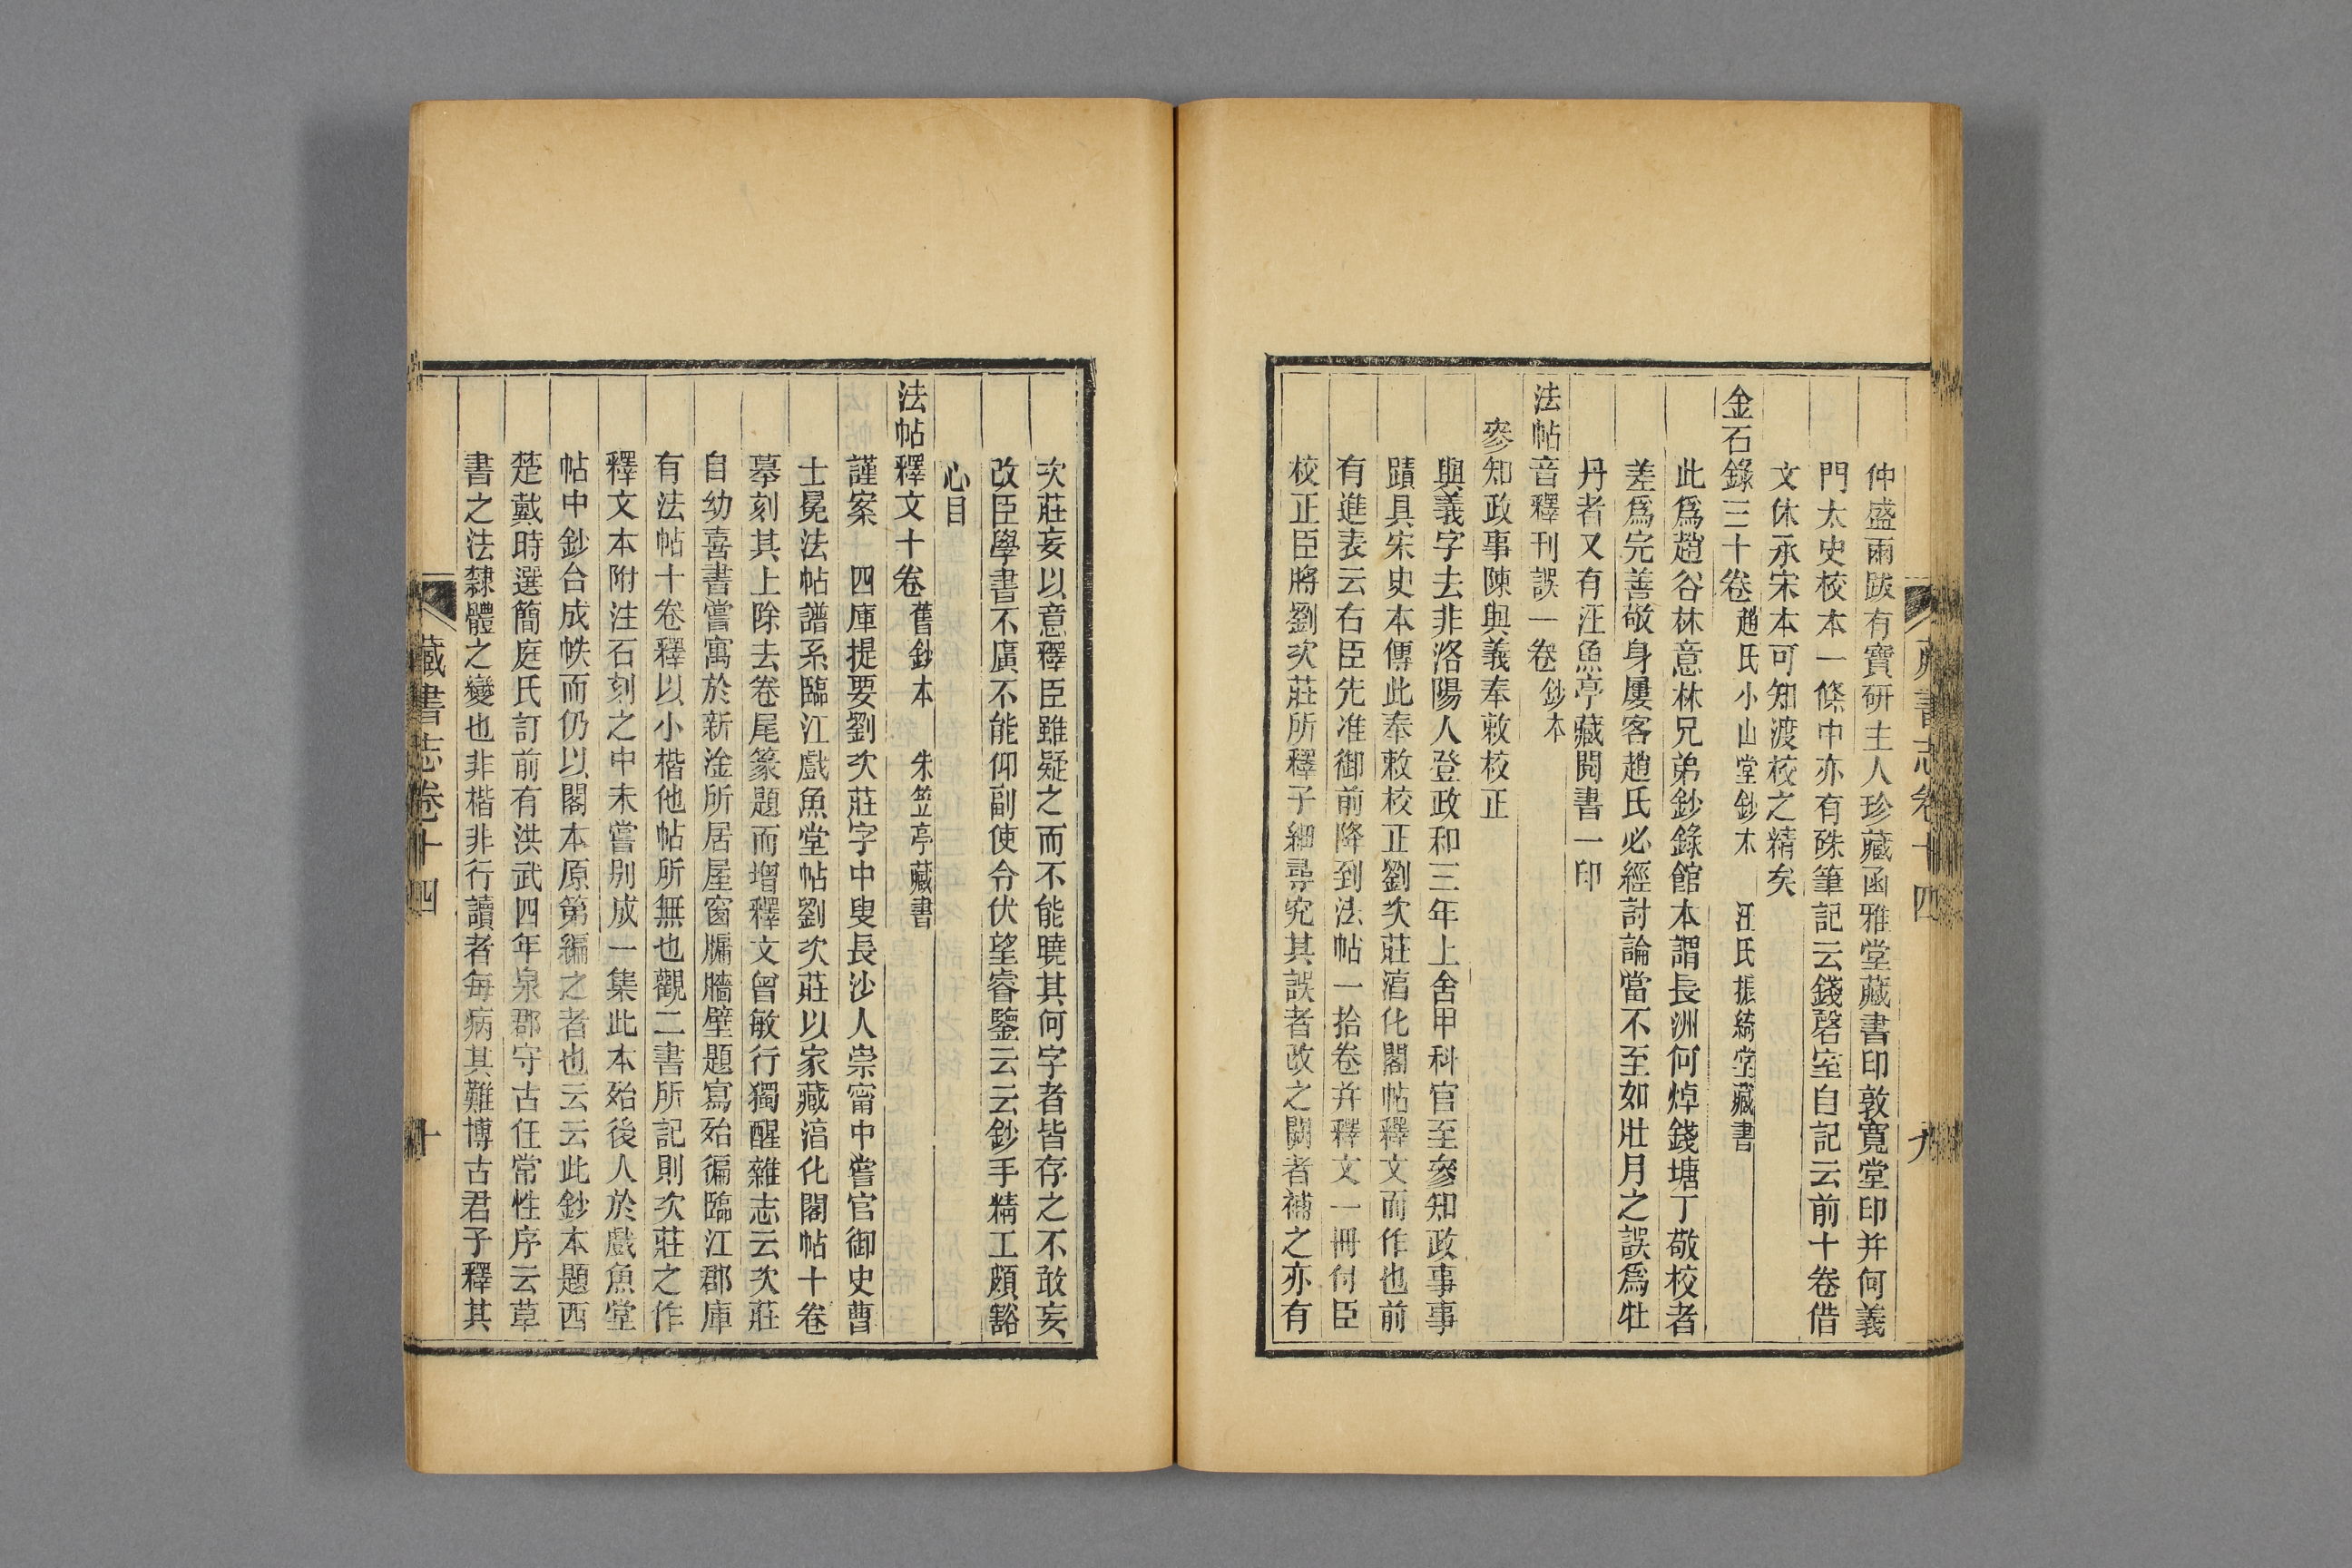 仲盛兩跋有寶研主人珍藏函雅堂藏書印敦寬堂印并何義
門太史校本一條中亦有硃筆記云錢磬室自記云前十卷借
文休承宋本可知渡校之精矣
金石錄三十卷趙氏小山堂鈔本 汪氏振綺堂藏書
此爲趙谷林意林兄弟鈔錄館本謂長洲何焯錢塘丁敬校者
差爲完善敬身屢客趙氏必經討論當不至如壯月之誤爲牡
丹者又有汪魚亭藏閱書一印
法帖音釋刊誤一卷鈔本
參知政事陳與義奉敕校正
與義字去非洛陽人登政和三年上舍甲科官至參知政事事
蹟具宋史本傳此奉敕校正劉次莊淳化閣帖釋文而作也前
有進表云右臣先准御前降到法帖一拾卷并釋文一冊付臣
校正臣將劉次莊所釋子細尋究其誤者改之闕者補之亦有
藏書志卷十四 九
次莊妄以意釋臣雖疑之而不能曉其何字者皆存之不敢妄
改臣學書不廣不能仰副使令伏望睿鑒云云鈔手精工頗豁
心目
法帖釋文十卷舊鈔本 朱笠亭藏書
謹案 四庫提要劉次莊字中叟長沙人崇甯中嘗官御史曹
士冕法帖譜系臨江戲魚堂帖劉次莊以家藏淳化閣帖十卷
摹刻其上除去卷尾篆題而增釋文曾敏行獨醒雜志云次莊
自幼喜書嘗寓於新淦所居屋窗牖牆壁題寫殆徧臨江郡庫
有法帖十卷釋以小楷他帖所無也觀二書所記則次莊之作
釋文本附注石刻之中未嘗別成一集此本殆後人於戲魚堂
帖中鈔合成帙而仍以閣本原第編之者也云云此鈔本題西
楚戴時選簡庭氏訂前有洪武四年泉郡守古任常性序云草
書之法隸體之變也非楷非行讀者每病其難博古君子釋其
藏書志卷十四 十